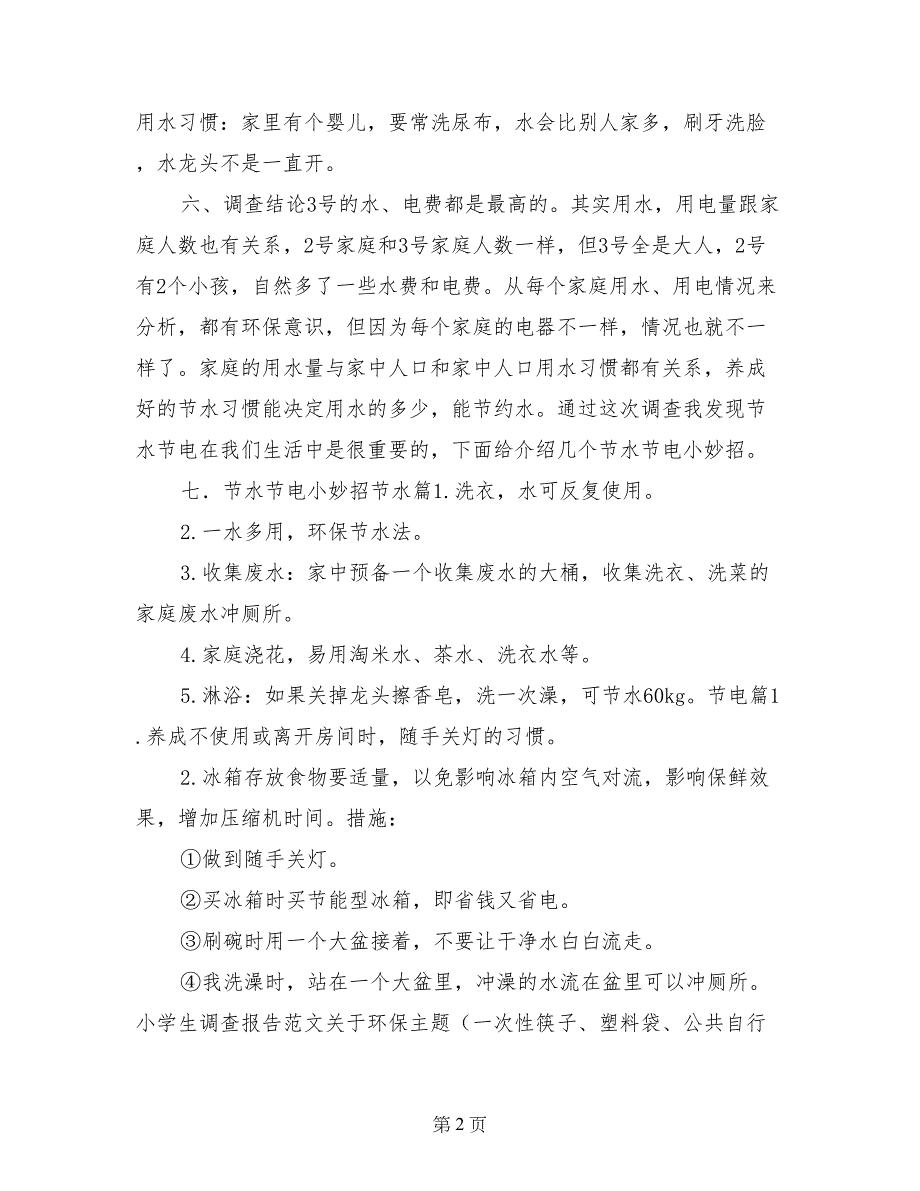 用水习惯：家里有个婴儿，要常洗尿布，水会比别人家多，刷牙洗脸
，水龙头不是一直开。
六、调查结论3号的水、电费都是最高的。其实用水，用电量跟家
庭人数也有关系，2号家庭和3号家庭人数一样，但3号全是大人，2号
有2个小孩，自然多了一些水费和电费。从每个家庭用水、用电情况来
分析，都有环保意识，但因为每个家庭的电器不一样，情况也就不一
样了。家庭的用水量与家中人口和家中人口用水习惯都有关系，养成
好的节水习惯能决定用水的多少，能节约水。通过这次调查我发现节
水节电在我们生活中是很重要的，下面给介绍几个节水节电小妙招。
七．节水节电小妙招节水篇1.洗衣，水可反复使用。
2.一水多用，环保节水法。
3.收集废水：家中预备一个收集废水的大桶，收集洗衣、洗菜的
家庭废水冲厕所。
4.家庭浇花，易用淘米水、茶水、洗衣水等。
5.淋浴：如果关掉龙头擦香皂，洗一次澡，可节水60kg。节电篇1
.养成不使用或离开房间时，随手关灯的习惯。
2.冰箱存放食物要适量，以免影响冰箱内空气对流，影响保鲜效
果，增加压缩机时间。措施：
①做到随手关灯。
②买冰箱时买节能型冰箱，即省钱又省电。
③刷碗时用一个大盆接着，不要让干净水白白流走。
④我洗澡时，站在一个大盆里，冲澡的水流在盆里可以冲厕所。
小学生调查报告范文关于环保主题（一次性筷子、塑料袋、公共自行
第 2 页